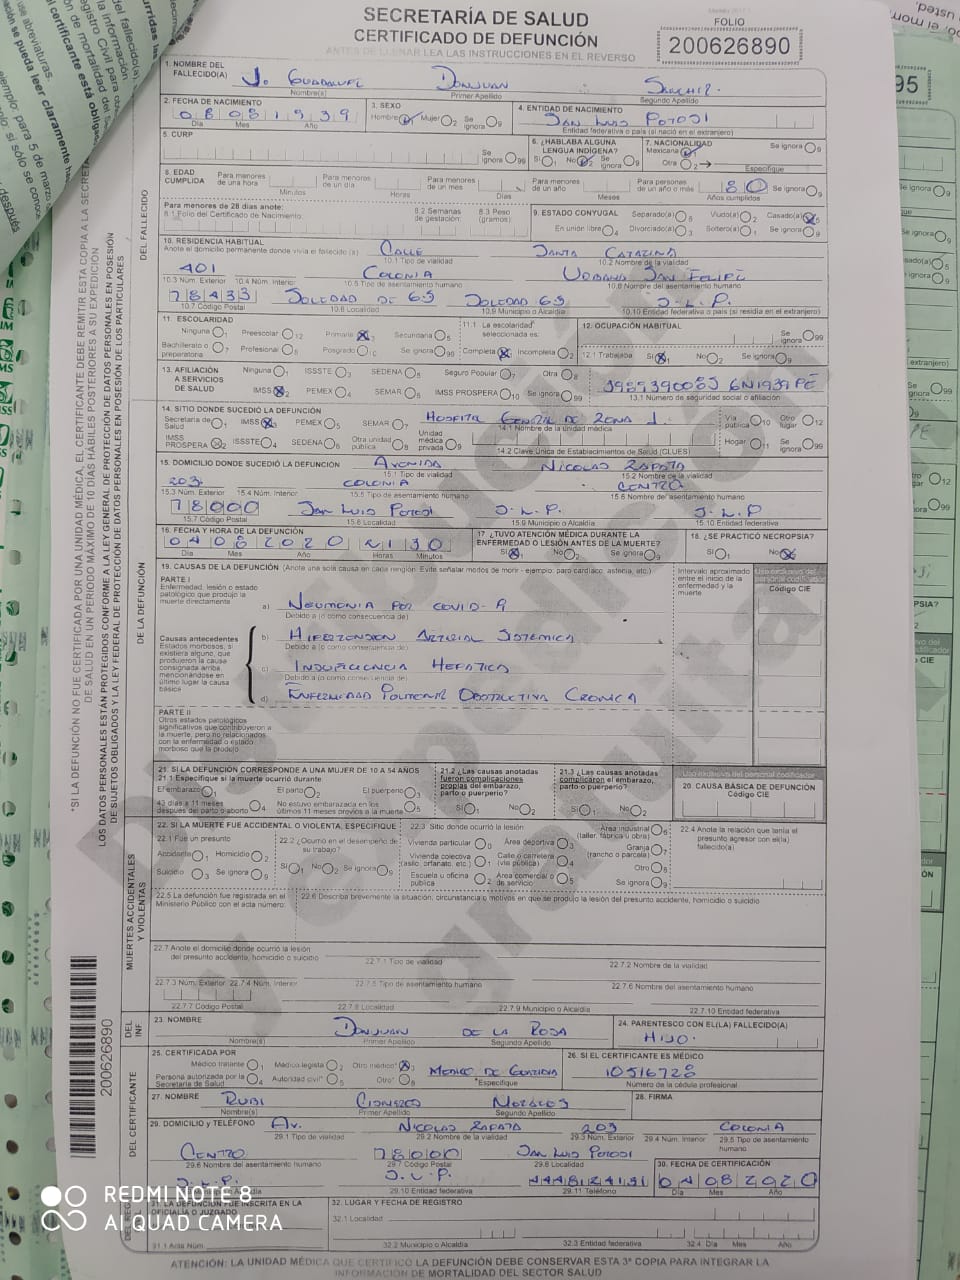 SECRETARÍA DE SALUD
CERTIFICADO DE DEFUNCIÓN
ANTES DE LLENAR LEA LAS INSTRUCCIONES EN EL REVERSO
FOLIO
200626890
1. NOMBRE DEL FALLECIDO(A) J. GUADALUPE DONJUAN
Nombre(s) Primer Apellido Segundo Apellido
2. FECHA DE NACIMIENTO 08081939
Día Mes Año
3. SEXO
Hombre 1 Mujer 2 Se ignora 9
4. ENTIDAD DE NACIMIENTO
SAN LUIS POTOSI
Entidad federativa o país (si nació en el extranjero)
5. CURP
Se ignora 99
6. ¿HABLABA ALGUNA LENGUA INDÍGENA?
Sí 1 No 2 Se ignora 9
7. NACIONALIDAD
Mexicana 1 Otra 2 Se ignora 9
Especifique
8. EDAD CUMPLIDA
Para menores de una hora Minutos
Para menores de un día Horas
Para menores de un mes Días
Para menores de un año Meses
Para personas de un año o más 80 Años cumplidos
Se ignora 9
Para menores de 28 días anote:
8.1 Folio del Certificado de Nacimiento:
8.2 Semanas de gestación:
8.3 Peso (gramos):
9. ESTADO CONYUGAL Separado(a) 6 Viudo(a) 2 Casado(a) 5
En unión libre 4 Divorciado(a) 3 Soltero(a) 1 Se ignora 9
10. RESIDENCIA HABITUAL
Anote el domicilio permanente donde vivía el fallecido (a) CALLE SANTA CATARINA
10.1 Tipo de vialidad 10.2 Nombre de la vialidad
401 COLONIA URBANA SAN FELIPE
10.3 Núm. Exterior 10.4 Núm. Interior 10.5 Tipo de asentamiento humano 10.6 Nombre del asentamiento humano
78433 SOLEDAD DE GS SOLEDAD GS S.L.P.
10.7 Código Postal 10.8 Localidad 10.9 Municipio o Alcaldía 10.10 Entidad federativa o país (si residía en el extranjero)
11. ESCOLARIDAD
Ninguna 1 Preescolar 12 Primaria Secundaria
Bachillerato o preparatoria 7 Profesional 8 Posgrado Se ignora 99
11.1 La escolaridad seleccionada es:
Completa 1 Incompleta 2
12. OCUPACIÓN HABITUAL
Se ignora 99
12.1 Trabajaba Sí 1 No 2 Se ignora 9
13. AFILIACIÓN A SERVICIOS DE SALUD
Ninguna 1 ISSSTE 3 SEDENA Seguro Popular 7 Otra 8
IMSS 2 PEMEX 4 SEMAR IMSS PROSPERA 10 Se ignora 99
13.1 Número de seguridad social o afiliación
14. SITIO DONDE SUCEDIÓ LA DEFUNCIÓN HOSPITAL GENERAL DE ZONA 1
Secretaría de Salud 1 IMSS 3 PEMEX 5 SEMAR 7
14.1 Nombre de la unidad médica
IMSS PROSPERA 2 ISSSTE 4 SEDENA 6 Otra unidad pública 8 Unidad médica privada 9
14.2 Clave Única de Establecimientos de Salud (CLUES)
Vía pública 10 Otro lugar 12
Hogar 11 Se ignora 99
15. DOMICILIO DONDE SUCEDIÓ LA DEFUNCIÓN AVENIDA NICOLAS ZAPATA
15.1 Tipo de vialidad 15.2 Nombre de la vialidad
203 COLONIA CENTRO
15.3 Núm. Exterior 15.4 Núm. Interior 15.5 Tipo de asentamiento humano 15.6 Nombre del asentamiento humano
78000 SAN LUIS POTOSI S.L.P. S.L.P
15.7 Código Postal 15.8 Localidad 15.9 Municipio o Alcaldía 15.10 Entidad federativa
16. FECHA Y HORA DE LA DEFUNCIÓN
04082020 2130
Día Mes Año Horas Minutos
17. ¿TUVO ATENCIÓN MÉDICA DURANTE LA ENFERMEDAD O LESIÓN ANTES DE LA MUERTE?
Sí 1 No 2 Se ignora 9
18. ¿SE PRACTICÓ NECROPSIA?
Sí 1 No 2
19. CAUSAS DE LA DEFUNCIÓN (Anote una sola causa en cada renglón. Evite señalar modos de morir - ejemplo: paro cardíaco, astenia, etc.)
Intervalo aproximado entre el inicio de la enfermedad y la muerte
Uso exclusivo del personal codificador
Código CIE
PARTE I
Enfermedad, lesión o estado patológico que produjo la muerte directamente
a) NEUMONIA POR COVID-19
Debido a (o como consecuencia de)
Causas antecedentes
Estados morbosos, si existiera alguno, que produjeron la causa consignada arriba, mencionándose en último lugar la causa básica
b) HIPERTENSION ARTERIAL SISTEMICA
Debido a (o como consecuencia de)
c) INSUFICIENCIA HEPATICA
Debido a (o como consecuencia de)
d) ENFERMEDAD PULMONAR OBSTRUCTIVA CRONICA
PARTE II
Otros estados patológicos significativos que contribuyeron a la muerte, pero no relacionados con la enfermedad o estado morboso que la produjo
21. SI LA DEFUNCIÓN CORRESPONDE A UNA MUJER DE 10 A 54 AÑOS
21.1 Especifique si la muerte ocurrió durante
El embarazo 1 El parto 2 El puerperio 3
43 días a 11 meses después del parto o aborto 4 No estuvo embarazada en los últimos 11 meses previos a la muerte 5
21.2 ¿Las causas anotadas fueron complicaciones propias del embarazo, parto o puerperio?
Sí 1 No 2
21.3 ¿Las causas anotadas complicaron el embarazo, parto o puerperio?
Sí 1 No 2
Uso exclusivo del personal codificador
20. CAUSA BÁSICA DE DEFUNCIÓN
Código CIE
22. SI LA MUERTE FUE ACCIDENTAL O VIOLENTA, ESPECIFIQUE
22.1 Fue un presunto
Accidente 1 Homicidio 2
Suicidio 3 Se ignora 9
22.2 ¿Ocurrió en el desempeño de su trabajo?
Sí 1 No 2 Se ignora 9
22.3 Sitio donde ocurrió la lesión
Vivienda particular 0 Área deportiva 3 Área industrial (taller, fábrica u obra) 6
Vivienda colectiva (asilo, orfanato, etc.) 1 Calle o carretera (vía pública) 4 Granja (rancho o parcela) 7
Escuela u oficina pública 2 Área comercial o de servicio 5 Otro 8
Se ignora 9
22.4 Anote la relación que tenía el presunto agresor con el(la) fallecido(a)
22.5 La defunción fue registrada en el Ministerio Público con el acta número:
22.6 Describa brevemente la situación, circunstancia o motivos en que se produjo la lesión del presunto accidente, homicidio o suicidio
22.7 Anote el domicilio donde ocurrió la lesión del presunto accidente, homicidio o suicidio
22.7.1 Tipo de vialidad 22.7.2 Nombre de la vialidad
22.7.3 Núm. Exterior 22.7.4 Núm. Interior 22.7.5 Tipo de asentamiento humano 22.7.6 Nombre del asentamiento humano
22.7.7 Código Postal 22.7.8 Localidad 22.7.9 Municipio o Alcaldía 22.7.10 Entidad federativa
23. NOMBRE DONJUAN DE LA ROSA
Nombre(s) Primer Apellido Segundo Apellido
24. PARENTESCO CON EL(LA) FALLECIDO(A)
HIJO
25. CERTIFICADA POR
Médico tratante 1 Médico legista 2 Otro médico* 3 MEDICO DE GUARDIA
Persona autorizada por la Secretaría de Salud 4 Autoridad civil* 5 Otro* 8 *Especifique
26. SI EL CERTIFICANTE ES MÉDICO
10516728
Número de la cédula profesional
27. NOMBRE RUBI CISNEROS MORALES
Nombre(s) Primer Apellido Segundo Apellido
28. FIRMA
29. DOMICILIO Y TELÉFONO AV. NICOLAS ZAPATA 203 COLONIA
29.1 Tipo de vialidad 29.2 Nombre de la vialidad 29.3 Núm. Exterior 29.4 Núm. Interior 29.5 Tipo de asentamiento humano
CENTRO 78000 SAN LUIS POTOSI
29.6 Nombre del asentamiento humano 29.7 Código Postal 29.8 Localidad
S.L.P. S.L.P.
29.10 Entidad federativa 29.11 Teléfono
30. FECHA DE CERTIFICACIÓN
04082020
Día Mes Año
31. LA DEFUNCIÓN FUE INSCRITA EN LA OFICIALÍA O JUZGADO
31.1 Acta Núm.
32. LUGAR Y FECHA DE REGISTRO
32.1 Localidad
32.2 Municipio o Alcaldía 32.3 Entidad federativa 32.4 Día Mes Año
ATENCIÓN: LA UNIDAD MÉDICA QUE CERTIFICÓ LA DEFUNCIÓN DEBE CONSERVAR ESTA 3ª COPIA PARA INTEGRAR LA
INFORMACIÓN DE MORTALIDAD DEL SECTOR SALUD
DEL FALLECIDO
DE LA DEFUNCIÓN
MUERTES ACCIDENTALES Y VIOLENTAS
DEL INF
DEL CERTIFICANTE
*SI LA DEFUNCIÓN NO FUE CERTIFICADA POR UNA UNIDAD MÉDICA, EL CERTIFICANTE DEBE REMITIR ESTA COPIA A LA SECRETARÍA DE SALUD EN UN PERIODO MÁXIMO DE 10 DÍAS HÁBILES POSTERIORES A SU EXPEDICIÓN
LOS DATOS PERSONALES ESTÁN PROTEGIDOS CONFORME A LA LEY GENERAL DE PROTECCIÓN DE DATOS PERSONALES EN POSESIÓN DE SUJETOS OBLIGADOS Y LA LEY FEDERAL DE PROTECCIÓN DE DATOS PERSONALES EN POSESIÓN DE LOS PARTICULARES
200626890
REDMI NOTE 8
AI QUAD CAMERA